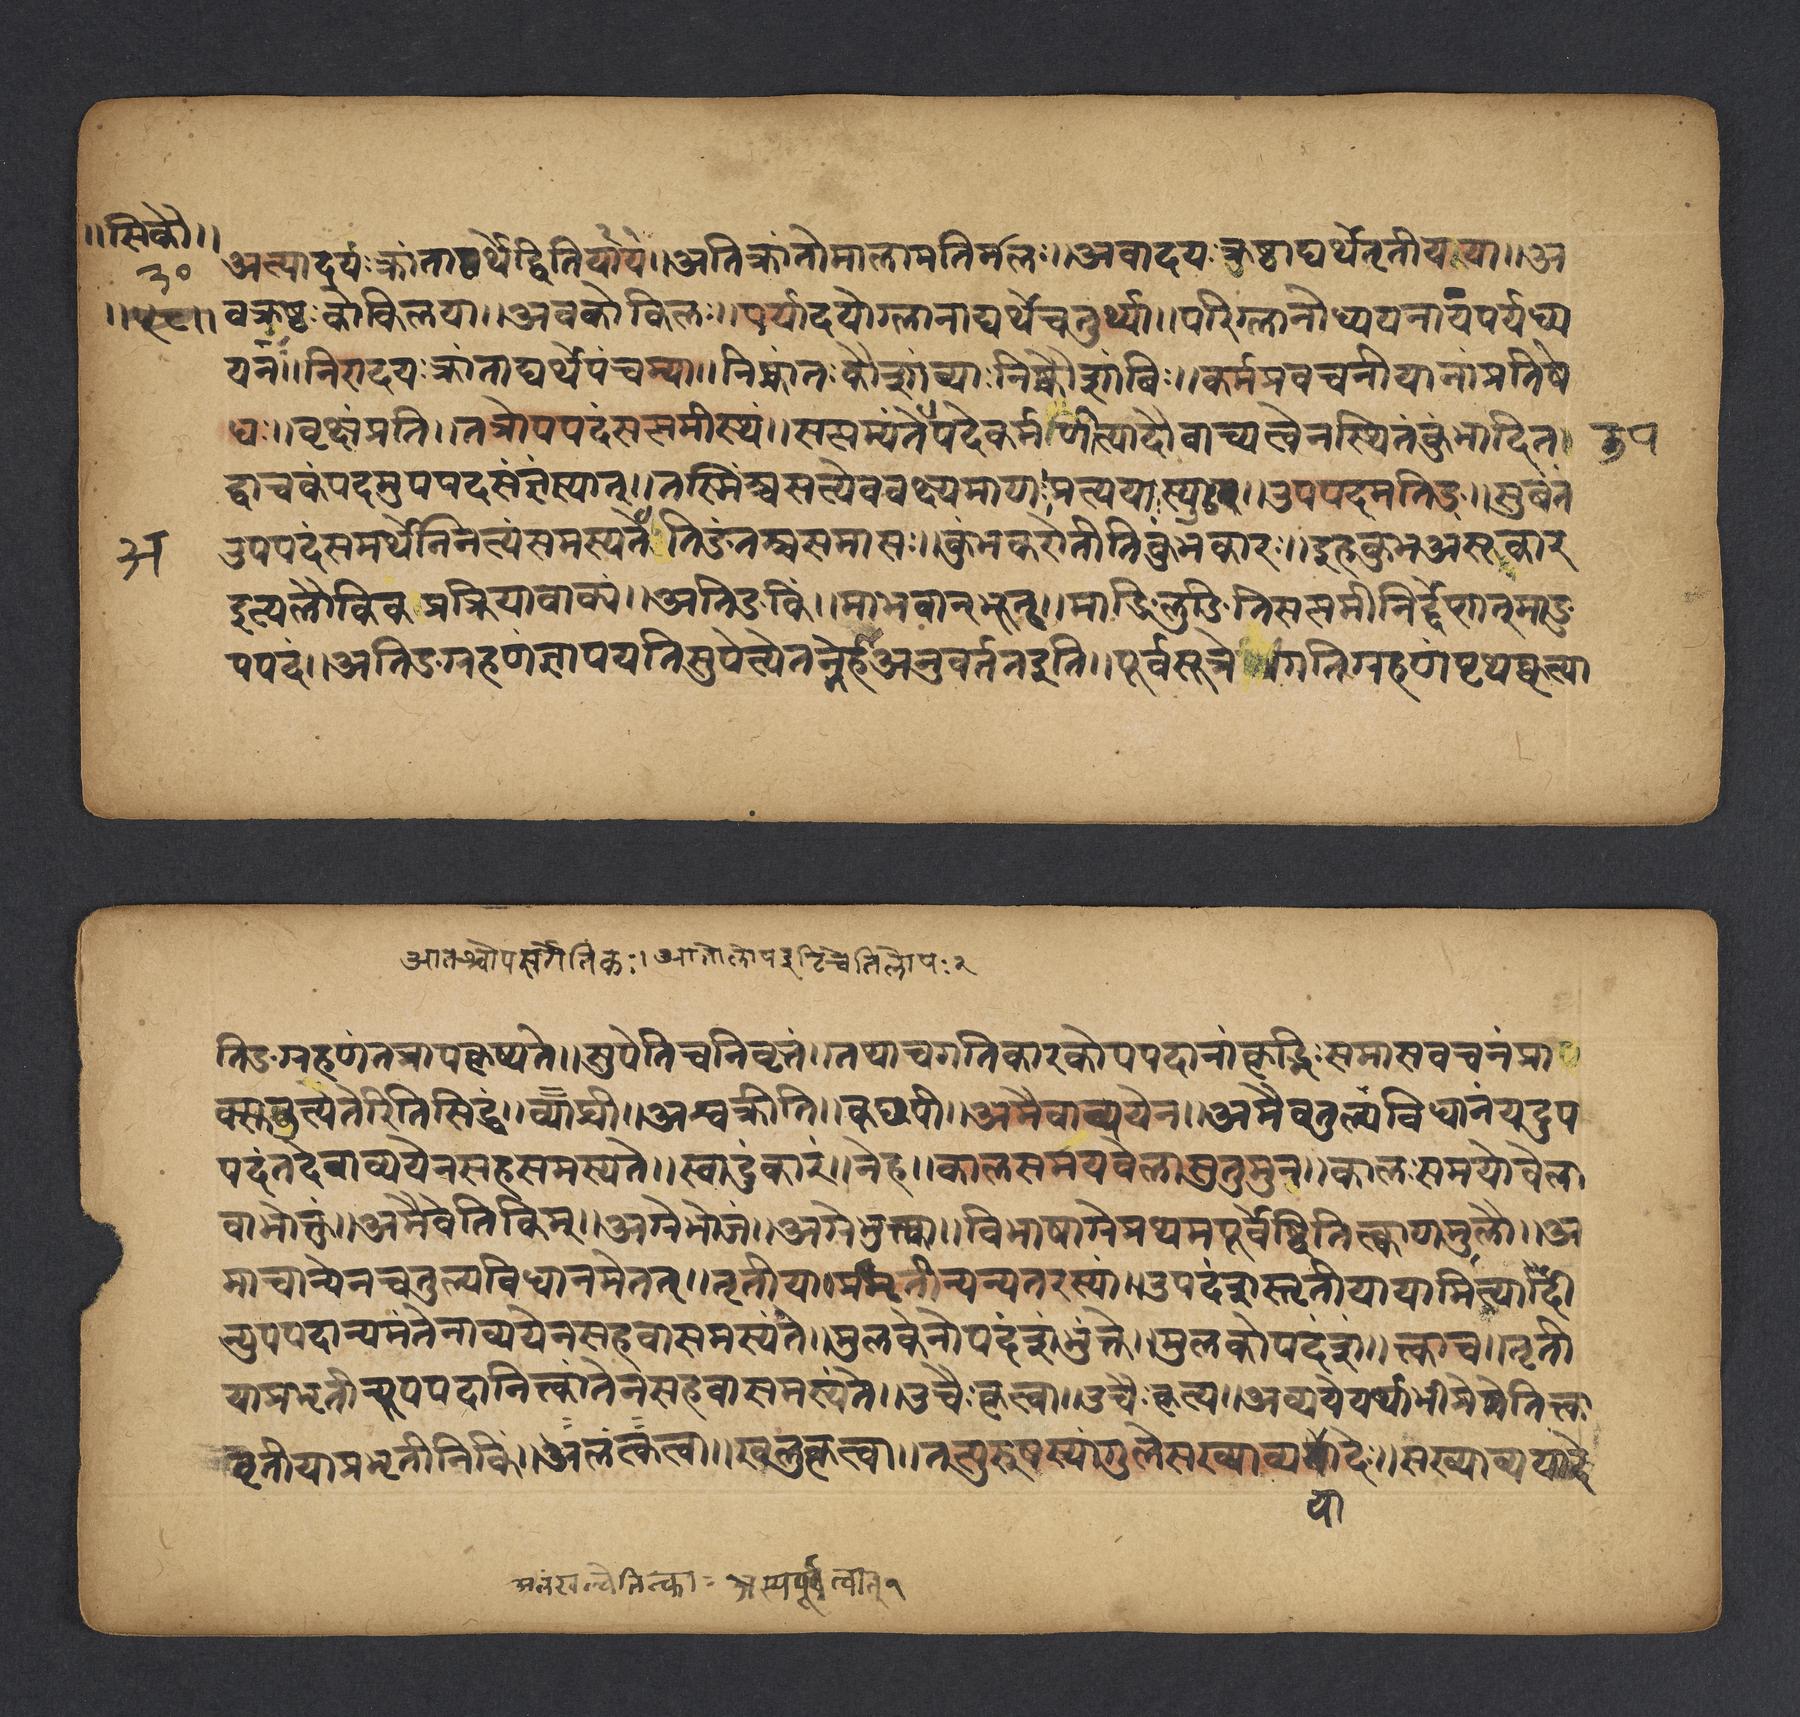 ॥सिकौ॥
३०
अत्यादयःक्रांताद्यर्थेद्वितियया॥अतिक्रांतोमालामतिर्मालः॥अवादयःक्रुष्टाद्यर्थेतृतीयया॥अ
वक्रुष्टःकोकिलया॥अवकोकिलः॥पर्यादयोग्लानाद्यर्थेचतुर्थ्या॥परिग्लानोध्ययनायपर्यध्य
यनः॥निरादयःक्रांताद्यर्थेपंचम्या॥निष्क्रांतःकौशांब्याःनिष्कौशांबिः॥कर्मप्रवचनीयानांप्रतिषे
धः॥वृक्षंप्रति॥तत्रोपपदंसप्तमीस्थं॥सप्तम्यंतेपदेकर्मणीत्यादौवाच्यत्वेनस्थितंकुंभादित
द्वाचकंपदमुपपदसंज्ञंस्यात्॥तस्मिंश्चसत्येववक्ष्यमाणःप्रत्ययःस्यात्॥उपपदमतिङ्॥सुबंतं
अ
उपपदंसमर्थेननित्यंसमस्यते अतिङंतश्चसमासः॥कुंभंकरोतीतिकुंभकारः॥इहकुंभअस्कार
इत्यलौकिकंप्रक्रियावाक्यं॥अतिङ्किं॥माभवान्भूत्॥माङिलुङितिसप्तमीनिर्द्देशात्माङु
पपदं॥अतिङ्ग्रहणंज्ञापयतिसुपेत्येतन्नेहअनुवर्ततइति॥पूर्वसूत्रे पिगतिग्रहणंपृथक्कृत्या
आतश्चोपसर्गेतिकः।आतोलोपइटिचेतिलोपः२
तिङ्ग्रहणंतत्रापकृष्यते॥सुपेतिचनिवृत्तं॥तथाचगतिकारकोपपदानांकृद्भिःसमासवचनंप्रा
क्सुबुत्पत्तेरितिसिद्धं॥व्याघ्री॥अश्वक्रीती॥कच्छपी॥अमैवाव्ययेन॥अमैवतुल्यविधानंयदुप
पदंतदेवाव्ययेनसहसमस्यते॥स्वादुंकारं॥नेह॥कालसमयवेलासुतुमुन्॥कालःसमयोवेला
वाभोक्तुं॥अमैवेतिकिम्॥अग्रेभोजं॥अग्रेभुक्त्वा॥विभाषाग्रेप्रथमपूर्वेष्वितिक्त्वाणमुलौ॥अ
माचान्येनचतुल्यविधानमेतत्॥तृतीयाप्रभृतीन्यन्यतरस्यां॥उपदंशस्तृतीयायामित्यादी
न्युपपदान्यमंतेनाव्ययेनसहवासमस्यंते॥मुलकेनोपदंशंभुंक्ते॥मुलकोपदंशं॥क्त्वाच॥तृती
याप्रभृतीन्युपपदानिक्त्वांतेनसहवासमस्यंते॥उच्चैःकृत्वा॥उच्चैःकृत्य॥अव्ययेयथाभीप्रेतेतिक्त्वा
तृतीयाप्रभृतीनिकिं॥अलंकृत्वा॥खलुकृत्वा॥तत्पुरुषस्यांगुलेःसंख्याव्ययादेः॥संख्याव्ययादे
या